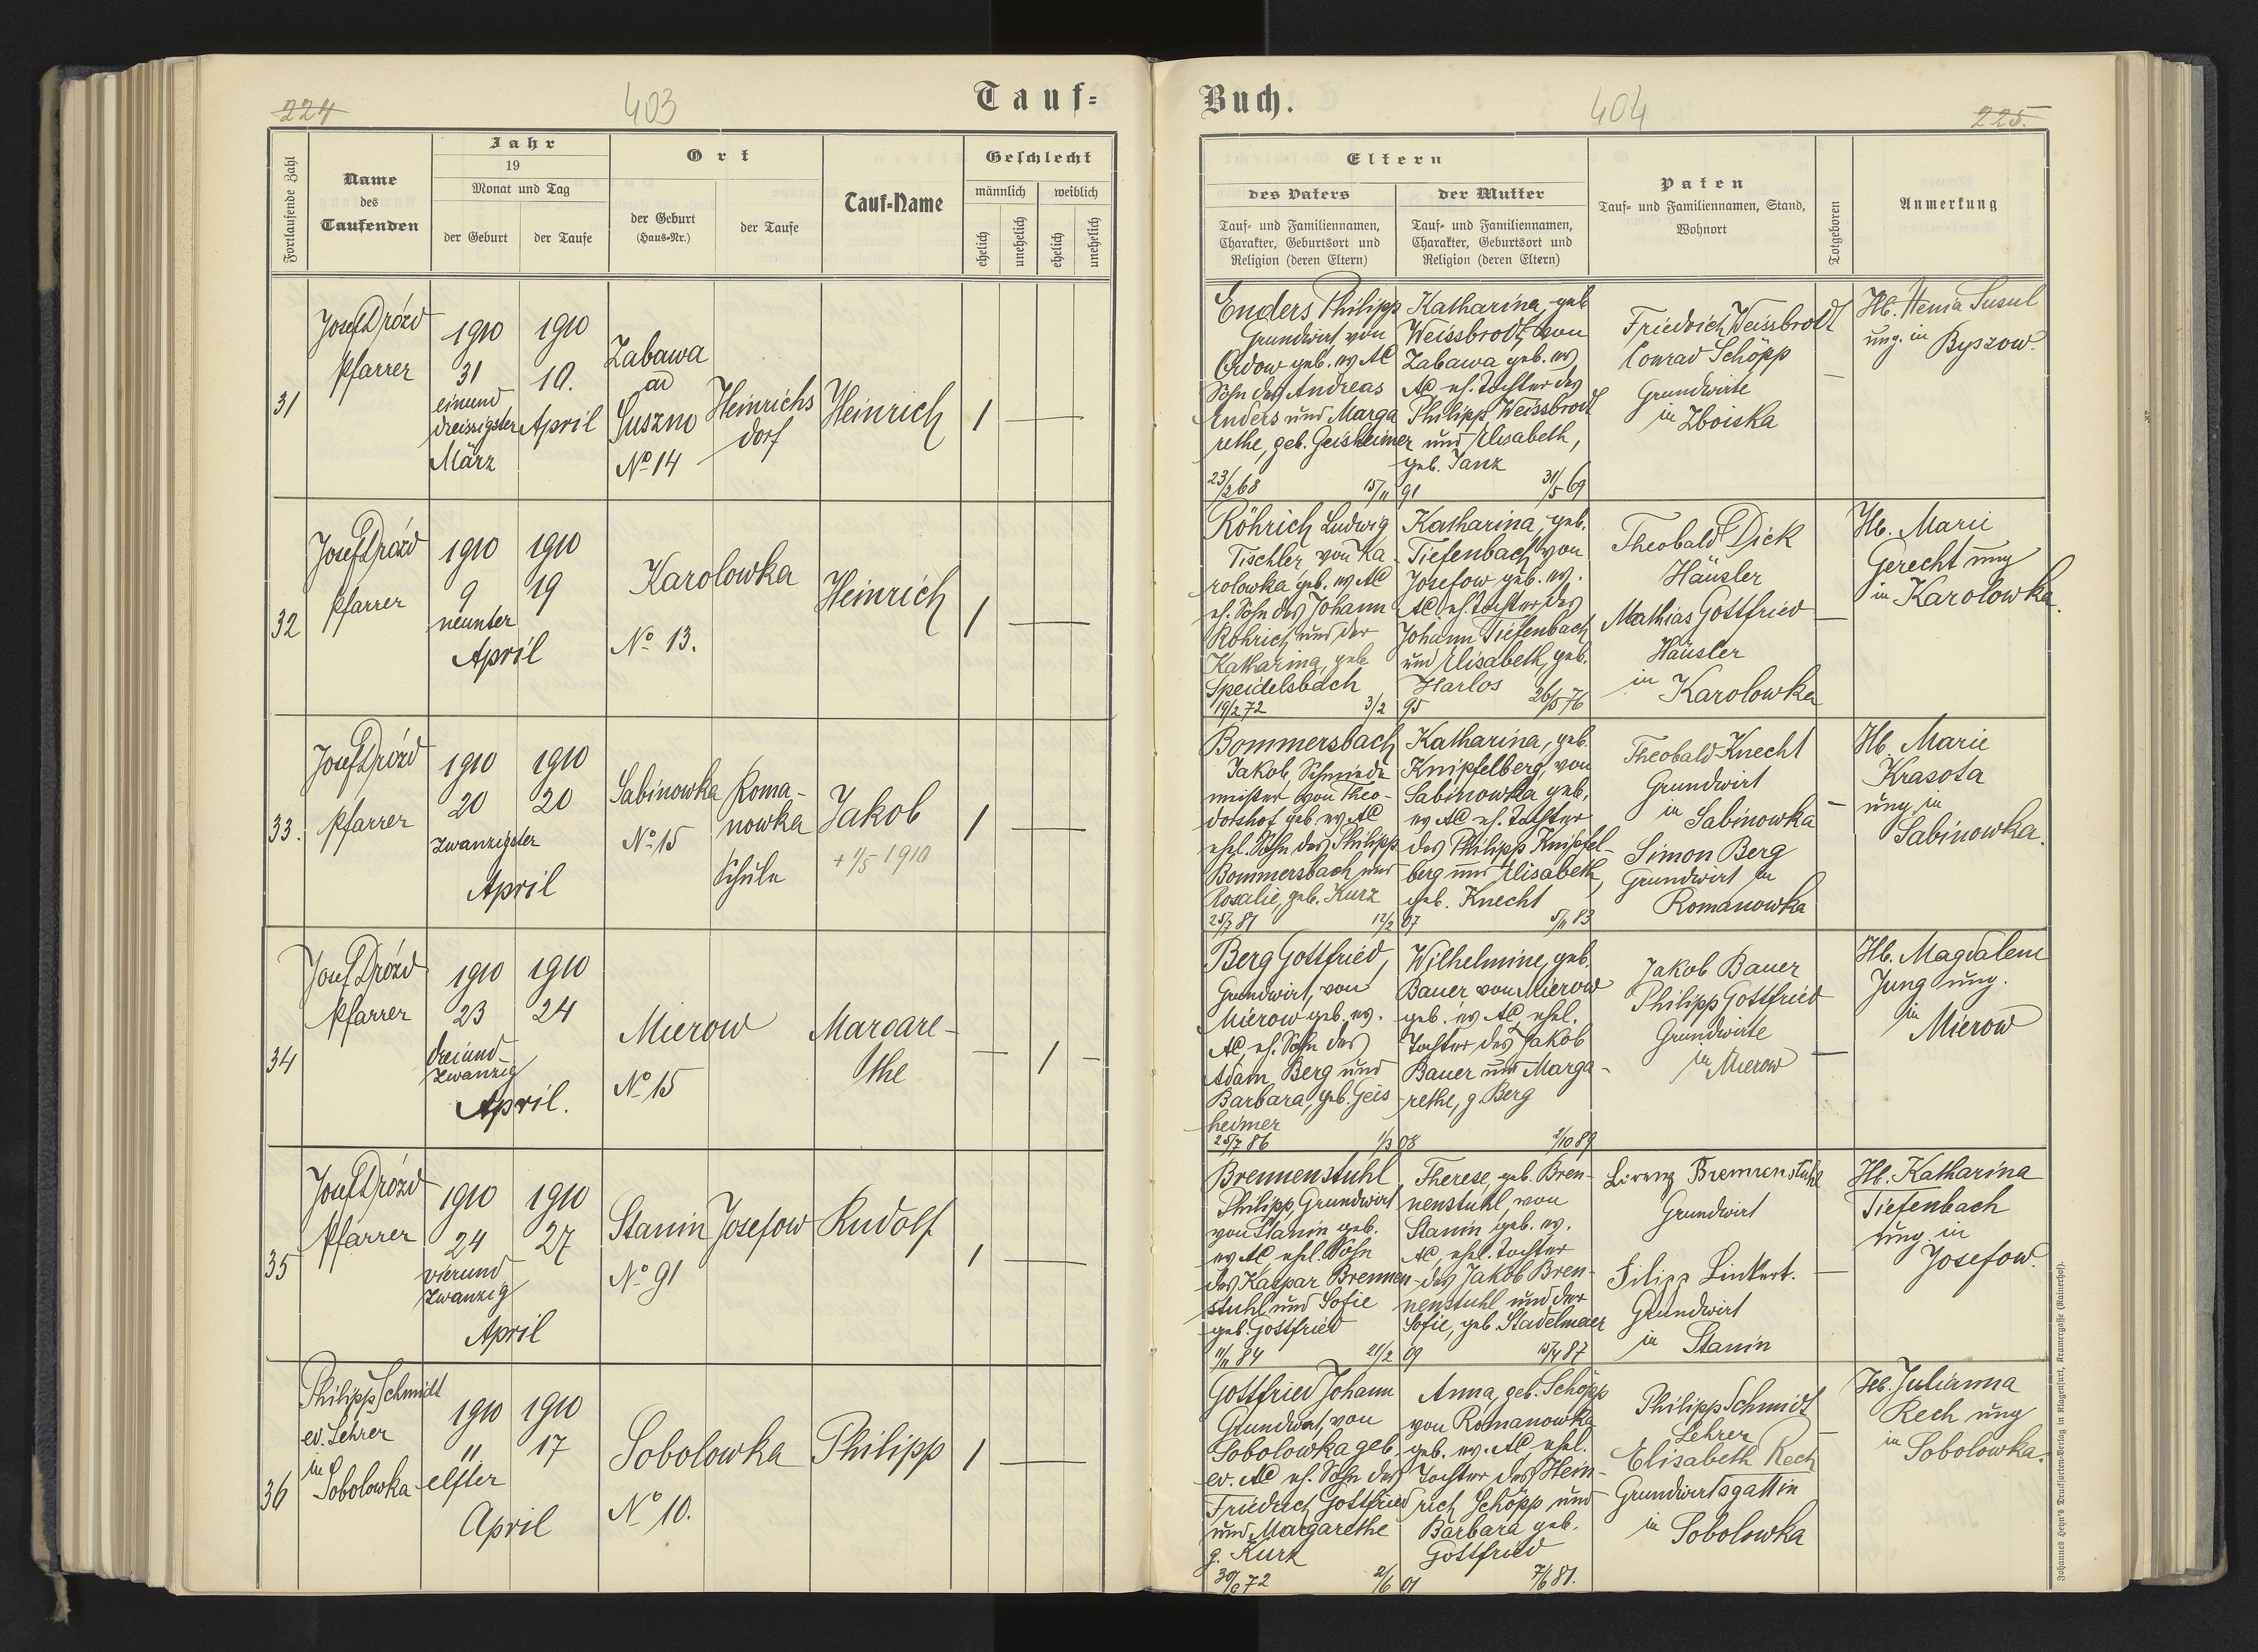 224
403
Tauf=
Fortlaufende Zahl
Name
des
Taufenden
Jahr
19
Monat und Tag
der Geburt
der Taufe
Ort
der Geburt
(Haus=Nr.)
der Taufe
Tauf=Name
Geschlecht
männlich
weiblich
ehelich
unehelich
ehelich
unehelich
31
Josef Drózd
Pfarrer
1910
31
einund
dreissigster
März
1910
10.
April
Zabawa
ad
Suszno
No 14
Heinrichs
dorf
Heinrich
1
32
Josef Drózd
Pfarrer
1910
9
neunter
April
1910
19
Karolowka
No 13.
Heinrich
1
33.
Josef Drózd
Pfarrer
1910
20
zwanzigster
April
1910
20
Sabinowka
No 15
Roma-
nowka
Schule
Jakob
+ 1/5 1910
1
34
Josef Drózd
Pfarrer
1910
23
dreiund-
zwanzig
April.
1910
24
Mierow
No 15
Margare-
the
1
35
Josef Drózd
Pfarrer
1910
24
vierund
zwanzig
April
1910
27
Stanin
No 91
Josefow
Rudolf
1
36
Philipp Schmidt
ev. Lehrer
in
Sobolowka
1910
11
elfter
April
1910
17
Sobolowka
No 10.
Philipp
1
Buch.
404
225.
Eltern
des Vaters
Tauf= und Familiennamen,
Charakter, Geburtsort und
Religion (deren Eltern)
der Mutter
Tauf= und Familiennamen,
Charakter, Geburtsort und
Religion (deren Eltern)
Paten
Tauf= und Familiennamen, Stand,
Wohnort
Totgeboren
Anmerkung
Enders Philipp
Grundwirt von
Ordow geb. ev AC
Sohn des Andreas
Enders und Marga
rethe, geb. Geisheimer
23/2 68
15/11 91
Katharina, geb
Weissbrodt von
Zabawa geb. ev
AC eh. Tochter des
Philipp Weissbrodt
und Elisabeth,
geb. Janz
31/5 69
Friedrich Weissbrodt
Conrad Schöpp
Grundwirte
in Zboiska
Hb. Henia Susul
ung. in
Byszow.
Röhrich Ludwig
Tischler von Ka
rolowka geb. ev AC
eh. Sohn des Johann
Röhrich und der
Katharina, geb
Speidelsbach
19/2 72
3/2 95
Katharina, geb.
Tiefenbach von
Josefow geb. ev.
AC eh. Tochter des
Johann Tiefenbach
und Elisabeth, geb.
Harlos
26/5 76
Theobald Dick
Häusler
Mathias Gottfried
Häusler
in Karolowka
Hb. Marie
Gerecht ung
in Karolowka.
Bommersbach
Jakob, Schmiede
meister von Theo-
dorshof geb ev AC
ehl. Sohn des Philipp
Bommersbach und
Rosalie, geb. Kurz
25/7 81
12/2 07
Katharina, geb.
Knipfelberg, von
Sabinowka geb.
ev AC eh. Tochter
des Philipp Knipfel-
berg und Elisabeth,
geb. Knecht
5/11 83
Theobald Knecht
Grundwirt
in Sabinowka
Simon Berg
Grundwirt in
Romanowka
Hb. Marie
Krasota
ung. in
Sabinowka.
Berg Gottfried,
Grundwirt, von
Mierow geb. ev.
AC, eh. Sohn des
Adam Berg und
Barbara, geb. Geis
heimer
25/7 86
1/3 08
Wilhelmine, geb.
Bauer von Mierow
geb. ev AC, ehl.
Tochter des Jakob
Bauer und Marga-
rethe, g. Berg
2/10 89
Jakob Bauer
Philipp Gottfried
Grundwirte
in Mierow
Hb. Magdalene
Jung ung.
in
Mierow
Brennenstuhl
Philipp, Grundwirt
von Stanin geb.
ev AC, ehl. Sohn
des Kaspar Brennen-
stuhl und Sofie
geb. Gottfried
11/11 84
21/2 09
Therese, geb. Bren-
nenstuhl, von
Stanin geb. ev.
AC, ehl. Tochter
des Jakob Bren-
nenstuhl und der
Sofie, geb. Stadelmaier
15/4 87
Lorenz Brennenstuhl
Grundwirt
Filipp Linkert.
Grundwirt
in Stanin
Hb. Katharina
Tiefenbach
ung. in
Josefow.
Gottfried Johann
Grundwirt, von
Sobolowka geb.
ev. AC eh. Sohn des
Friedrich Gottfried
und Margarethe
g. Kurz
30/6 72
2/6 01
Anna, geb. Schöpp
von Romanowka
geb. ev. AC, ehel.
Tochter des Hein-
rich Schöpp und
Barbara geb.
Gottfried
7/6 81.
Philipp Schmidt
Lehrer
Elisabeth Rech
Grundwirtsgattin
in Sobolowka
Hb. Julianna
Rech ung
in Sobolowka.
Johannes Heyn's Drucksorten=Verlag in Klagenfurt, Kramergasse (Rainerhof).